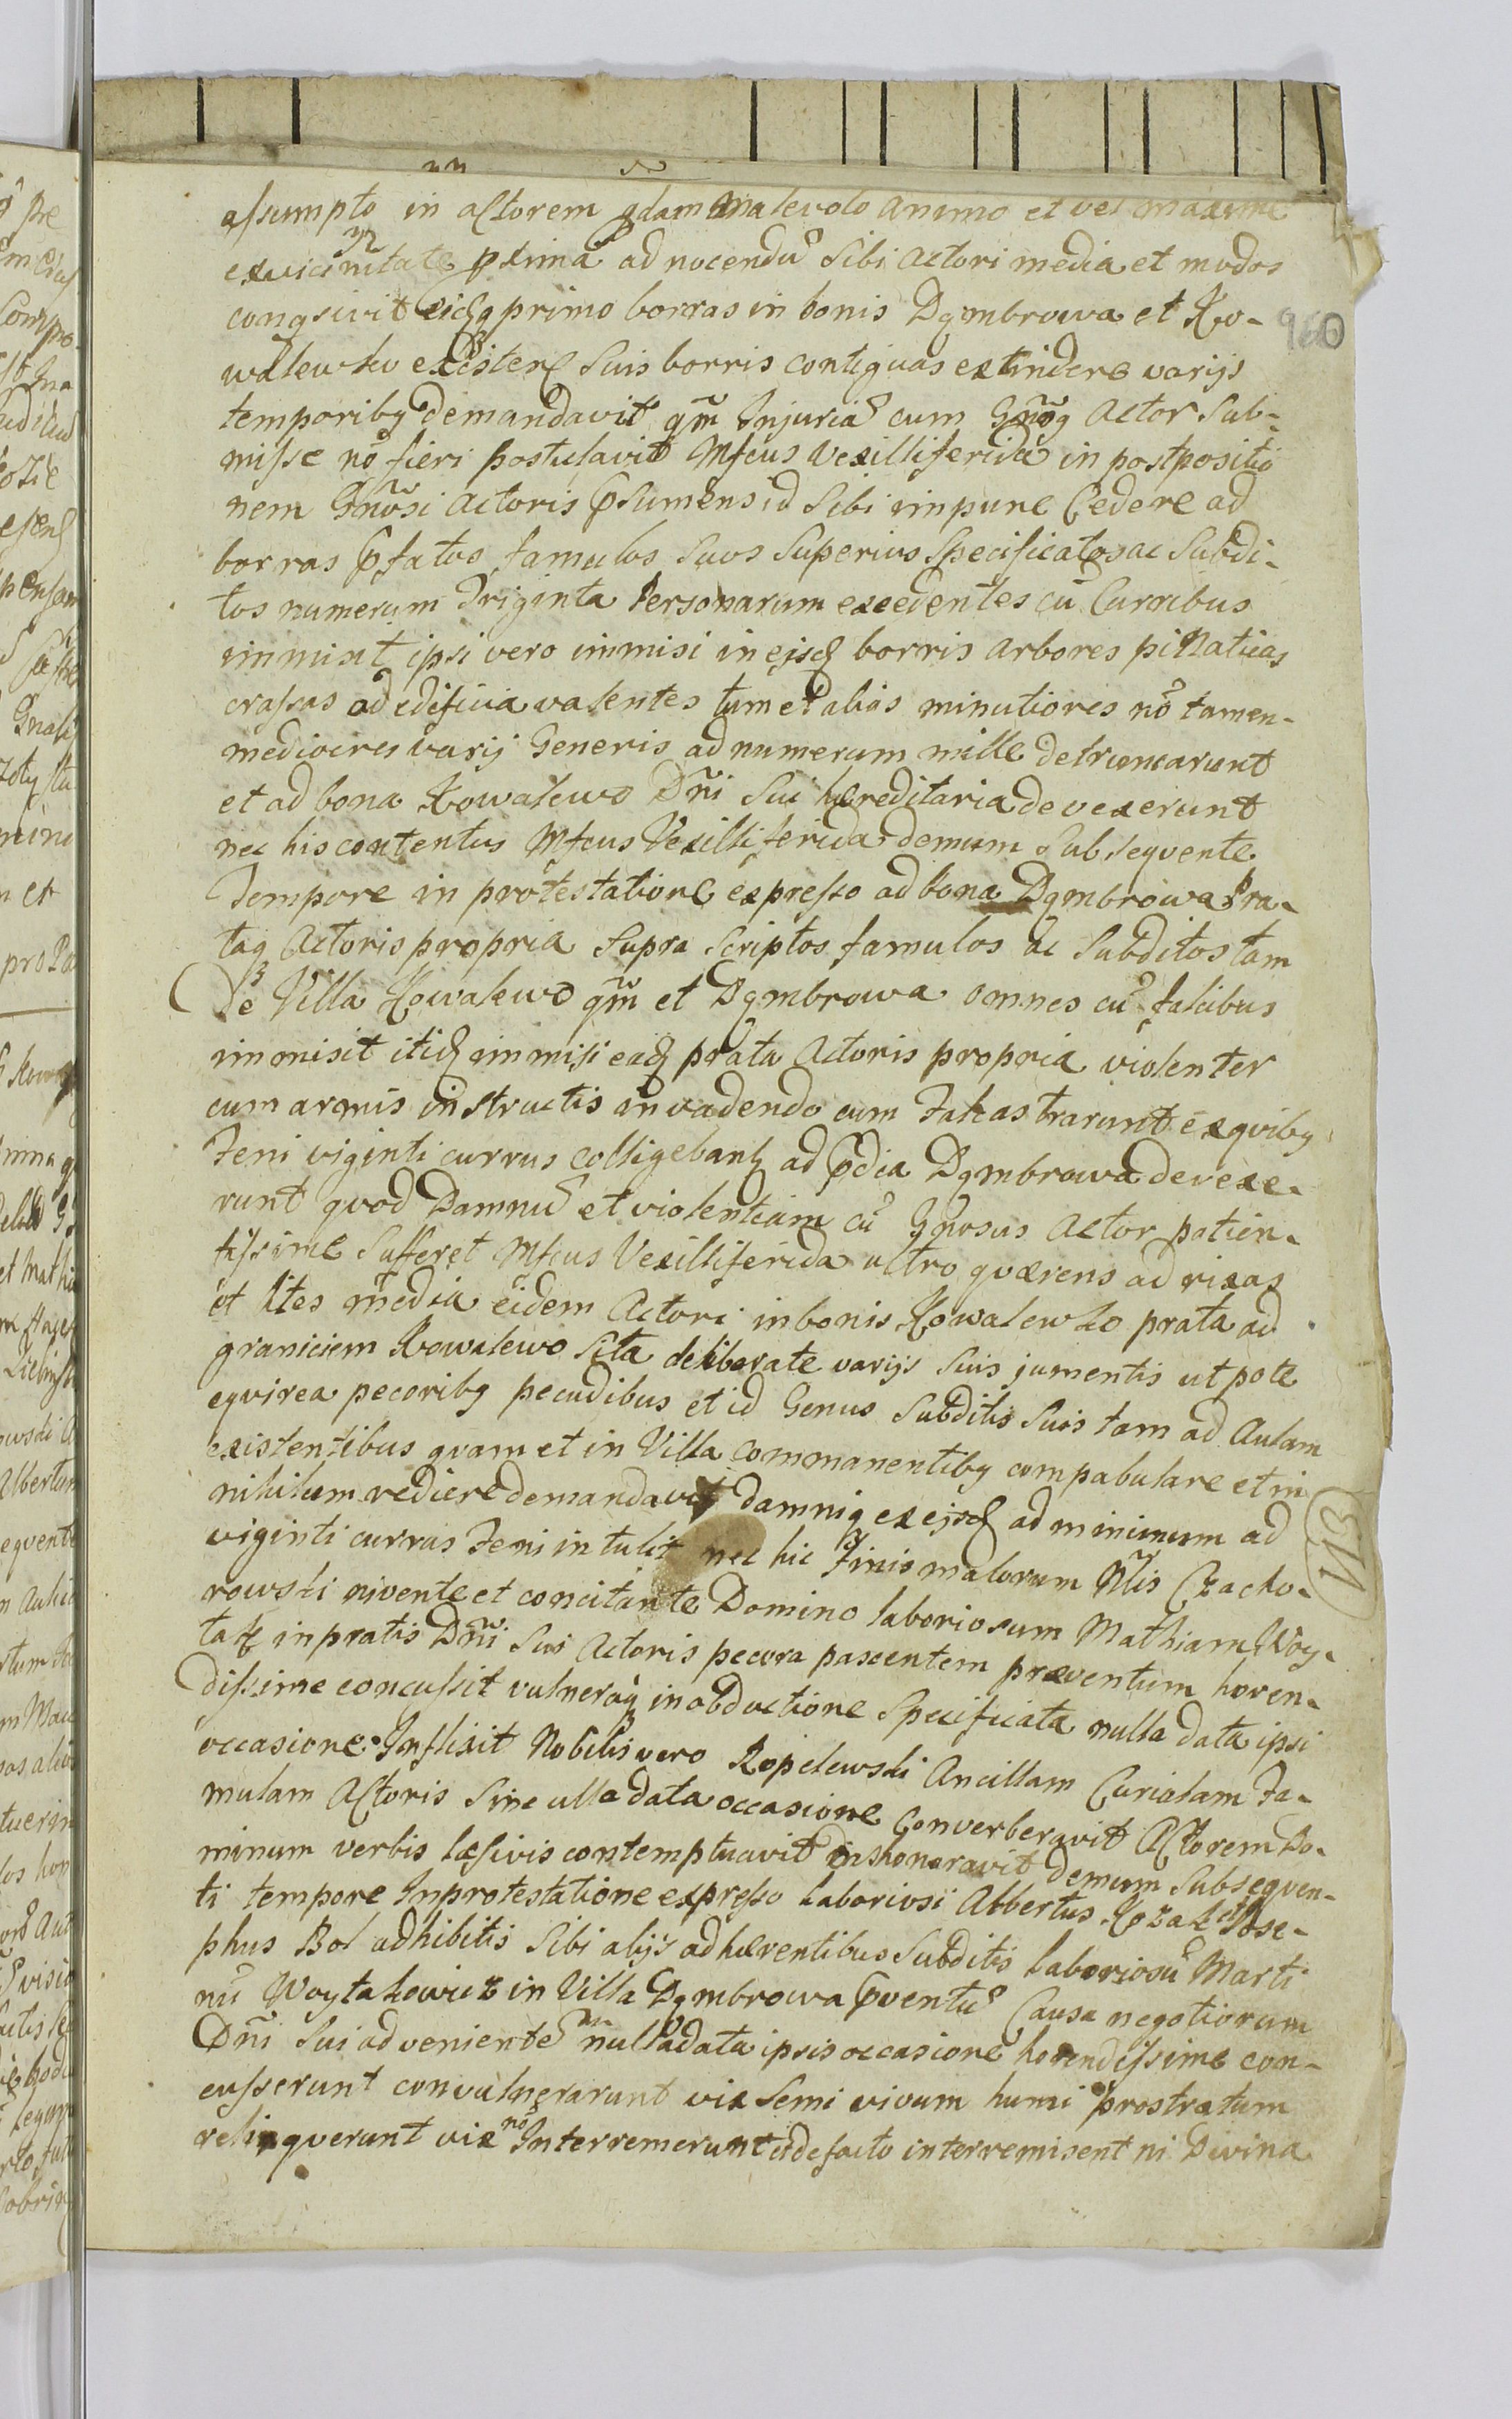 assumpto in actorem qdam malevolo animo et vel maxime
exvicinitate pxima ad nocendũ Sibi Actori media et modos
conqsivit eidq primo borras in bonis Dąmbrowa et Ko-
960
walewko existen Suis borris contiguas extindere varijs
temporibq demandavit qm̃ Injuriã cum Gñosq Actor Sub-
misse nõ fieri postulavit Mfcus Vexilliferida in postpositio
nem Gñosi Actoris psumens id Sibi impune Cedere ad
borras pfatos famulos Suos Superius Specificatos ac Subdi-
tos numerum Triginta Personarum excedentes cũ Curribus
immisit ipsi vero immisi in ejsd borris arbores pinaticas
crassas ad edificia valentes tum et alias minutiores nõ tamen
mediocres varij Generis ad numerum mille detruncarunt
et ad bona Kowalewo Dñi Sui hæreditaria devexerunt
nec his contentus Mfcus Vexilliferida demum Subseqvente
Tempore in protestatione expresso ad bona Dąmbrowa Pra-
taq Actoris propria Supra Scriptos famulos ac Subditos tam
De Villa Kowalewo qm̃ et Dąmbrowa omnes cũ falcibus
immisit itid immisi ead prata Actoris propria violenter
cum armis instructis invadendo cum Falcastrarunt exqvibq
Feni viginti currus colligebant ad pdia Dąmbrowa devexe-
runt qvod Damnũ et violentiam cũ Gñosus Actor patien-
tissime Sufferet Mfcus Vexilliferida ultro qværens ad rixas
et lites media eidem Actori in bonis Kowalewko prata ad
graniciem Kowalewo Sita deliberate varijs Suis jumentis utpote
eqvirea pecoribq pecudibus et id Genus Subditis Suis tam ad Aulam
existentibus qvam et in Villa commanentibq compabulare et in
nihilum rediere demandavit damniq ex ejsd ad minimum ad
113
viginti currus Feni intulit nec hic Finis malorum Nlis Czacho-
rowski nivente et concitante Domino laboriosum Mathiam Woy-
tak in pratis Dñi Sui Actoris pecora pascentem præventum horen-
dissime concussit vulneraq in obductione Specificata nulla data ipsi
occasione Inflixit Nobilis vero Kopelewski Ancillam Curialam Fa-
mulam Actoris Sine ulla data occasione Converberavit Actorem Do-
minum verbis læsivis contemptuavit inhonoravit demum Subseqven-
ti tempore Inprotestatione expresso Laboriosi Albertus Kozak et Jose-
phus Bol adhibitis Sibi alijs adhærentibus Subditis laboriosũ Marti
nũ Woytakowicz in Villa Dąmbrowa pventũ Causa negotiorum
Dñi Sui advenientẽ nulla data ipsis occasione horendissime con-
cusserunt convulnerarunt vix Semi vivum humi prostratum
relinqverunt vix nõ Interremerunt et de facto interremisent ni Divina